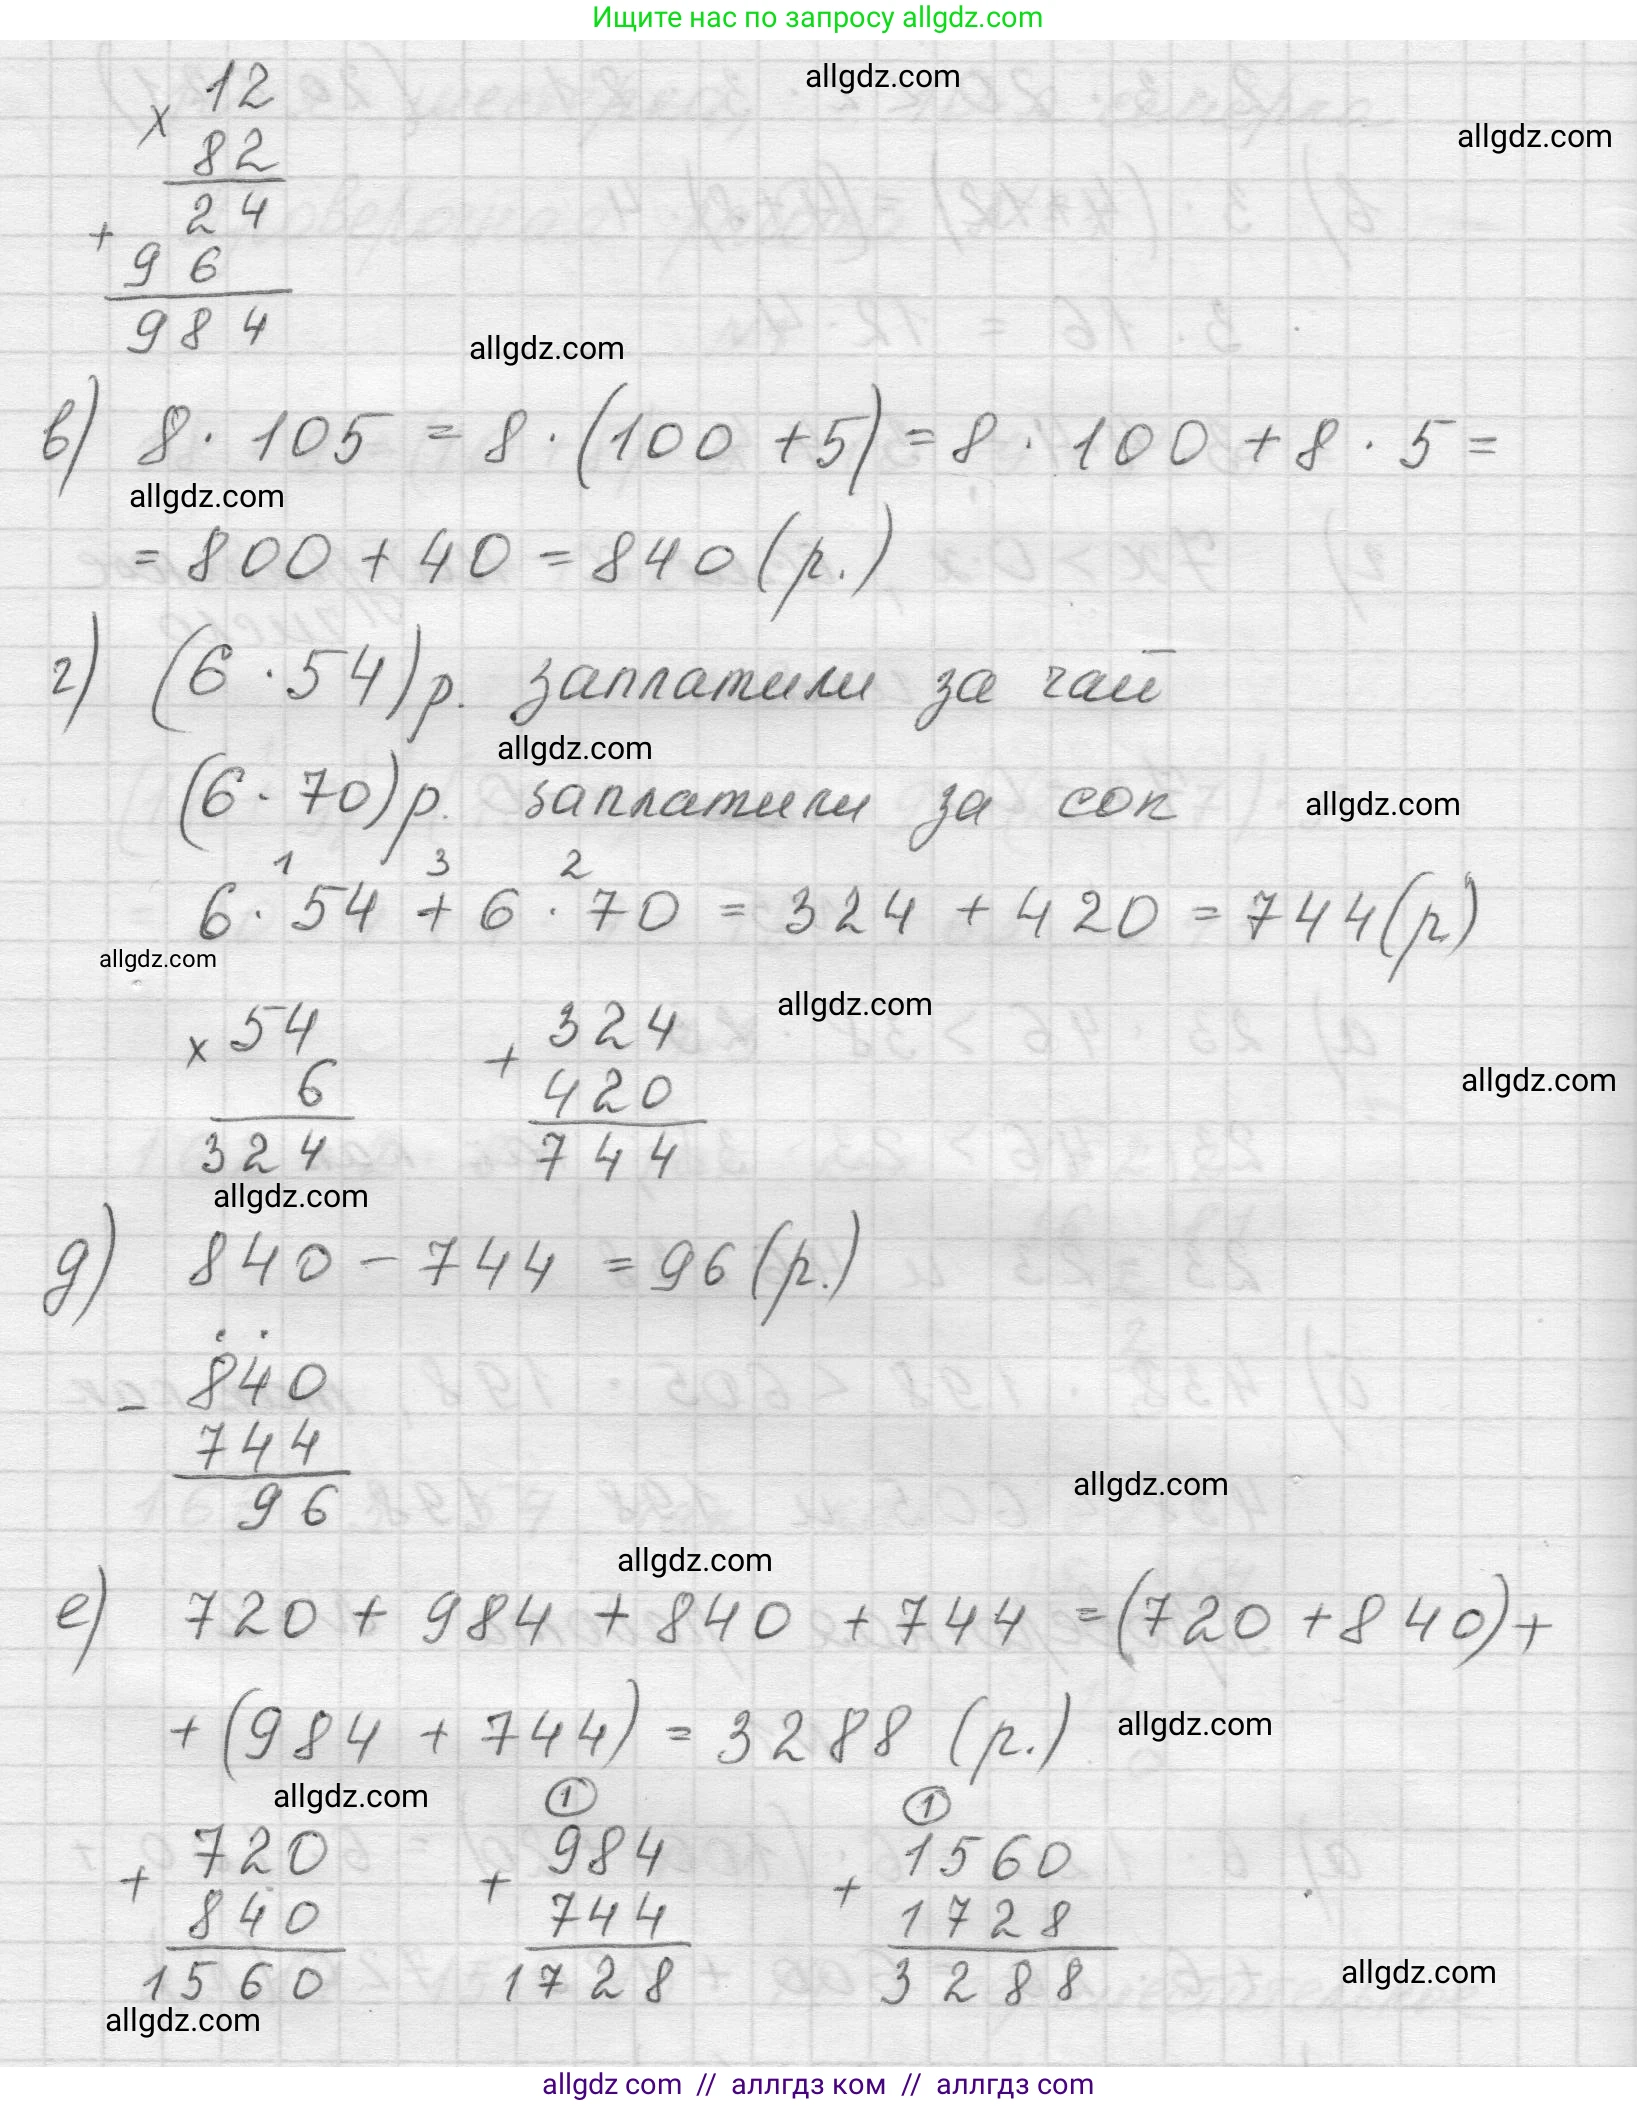 Ищите нас по запросу allgdz.com
allgdz.com
allgdz.com
× 12
82
+ 24
96
984
allgdz.com
в) 8 · 105 = 8 · (100 + 5) = 8 · 100 + 8 · 5 =
allgdz.com
= 800 + 40 = 840 (р.)
г) (6 · 54) р. заплатили за чай
allgdz.com
(6 · 70) р. заплатили за сок
allgdz.com
1 3 2
6 · 54 + 6 · 70 = 324 + 420 = 744 (р)
allgdz.com
allgdz.com
× 54
6
324
+ 324
420
744
allgdz.com
allgdz.com
д) 840 - 744 = 96 (р.)
- 840
744
96
allgdz.com
allgdz.com
е) 720 + 984 + 840 + 744 = (720 + 840) +
+ (984 + 744) = 3288 (р.)
allgdz.com
allgdz.com
+ 720
840
1560
1
+ 984
744
1728
1
+ 1560
1728
3288
allgdz.com
allgdz.com
allgdz com // аллгдз ком // аллгдз com